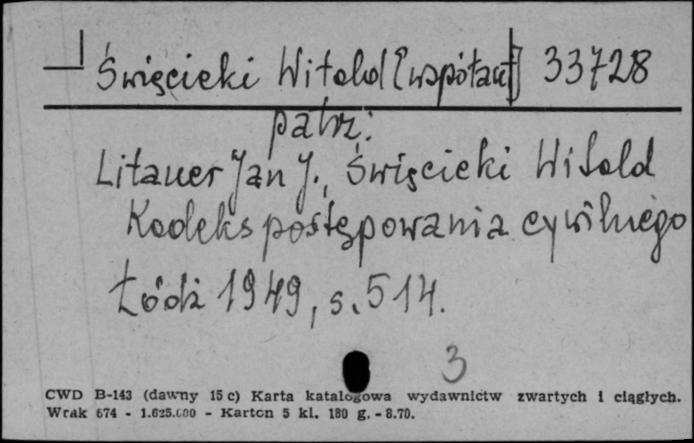 Święcicki Witold [współaut] 33728
patrz:
Litauer Jan J., Święcicki Witold
Kodeks postępowania cywilnego
Łódź 1949, s. 514.
3
CWD B-143 (dawny 15 c) Karta katalogowa wydawnictw zwartych i ciągłych.
Wrak 674 - 1.625.000 - Karton 5 kl. 180 g. - 8.70.